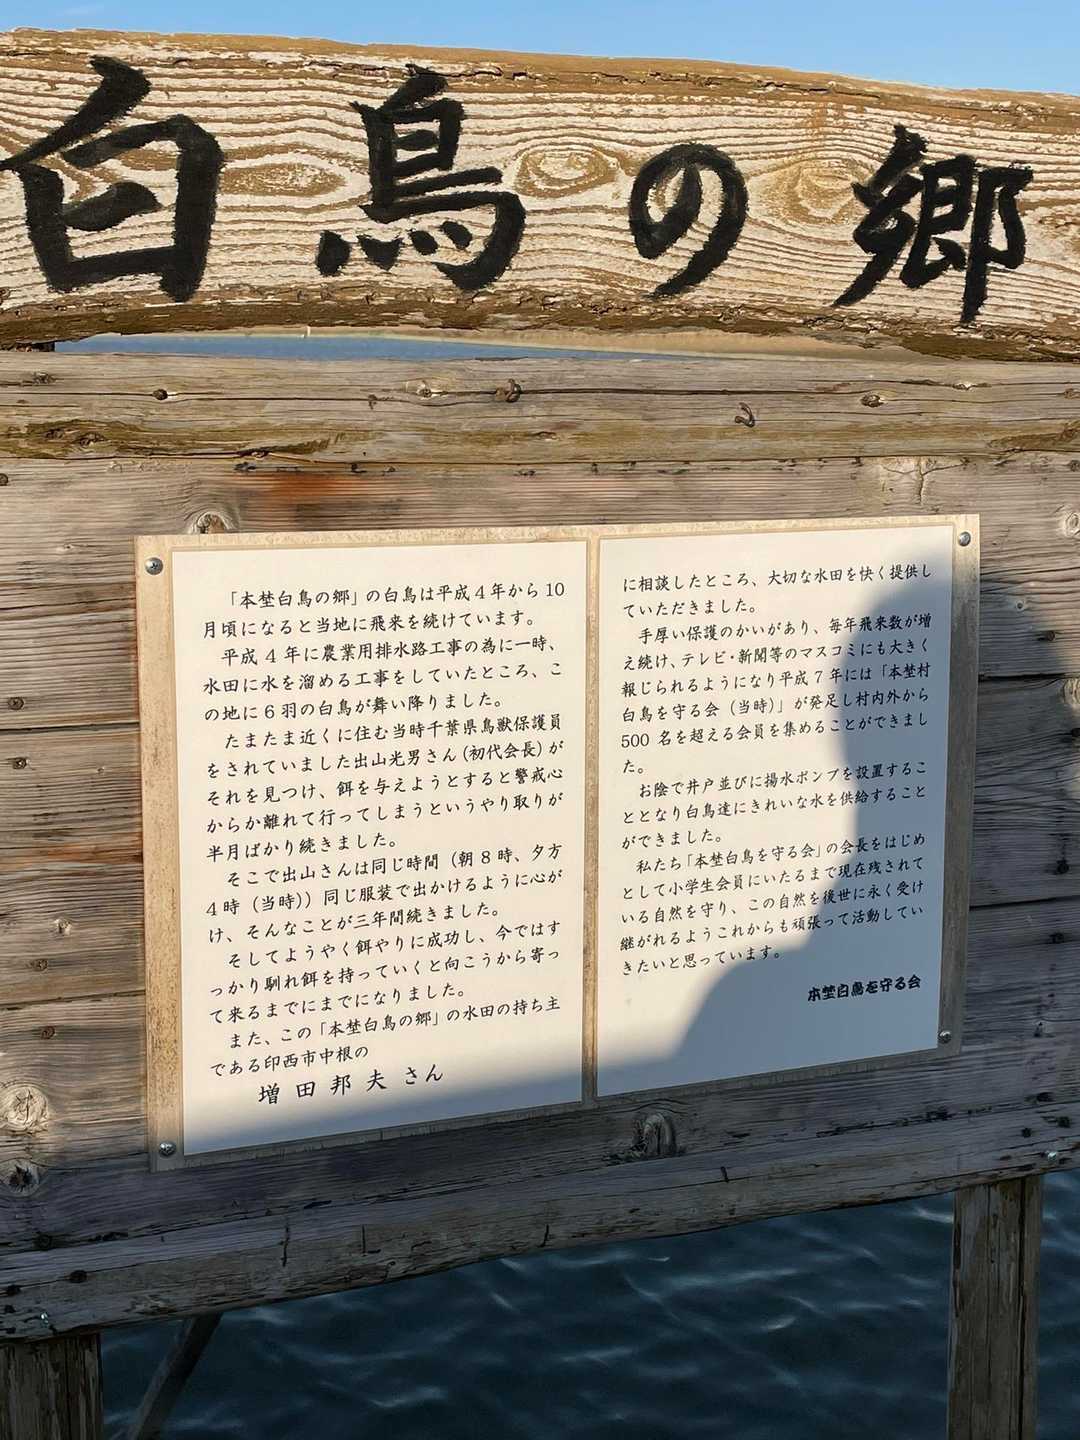 白鳥の郷
「本埜白鳥の郷」の白鳥は平成4年から10
月頃になると当地に飛来を続けています。
平成4年に農業用排水路工事の為に一時、
水田に水を溜める工事をしていたところ、こ
の地に6羽の白鳥が舞い降りました。
たまたま近くに住む当時千葉県鳥獣保護員
をされていました出山光男さん(初代会長)が
それを見つけ、餌を与えようとすると警戒心
からか離れて行ってしまうというやり取りが
半月ばかり続きました。
そこで出山さんは同じ時間（朝8時、夕方
4時（当時））同じ服装で出かけるように心が
け、そんなことが三年間続きました。
そしてようやく餌やりに成功し、今ではす
っかり馴れ餌を持っていくと向こうから寄っ
て来るまでにまでになりました。
また、この「本埜白鳥の郷」の水田の持ち主
である印西市中根の
増田邦夫さん
に相談したところ、大切な水田を快く提供し
ていただきました。
手厚い保護のかいがあり、毎年飛来数が増
え続け、テレビ・新聞等のマスコミにも大きく
報じられるようになり平成7年には「本埜村
白鳥を守る会（当時）」が発足し村内外から
500名を超える会員を集めることができまし
た。
お陰で井戸並びに揚水ポンプを設置するこ
ととなり白鳥達にきれいな水を供給すること
ができました。
私たち「本埜白鳥を守る会」の会長をはじめ
として小学生会員にいたるまで現在残されて
いる自然を守り、この自然を後世に永く受け
継がれるようこれからも頑張って活動してい
きたいと思っています。
本埜白鳥を守る会